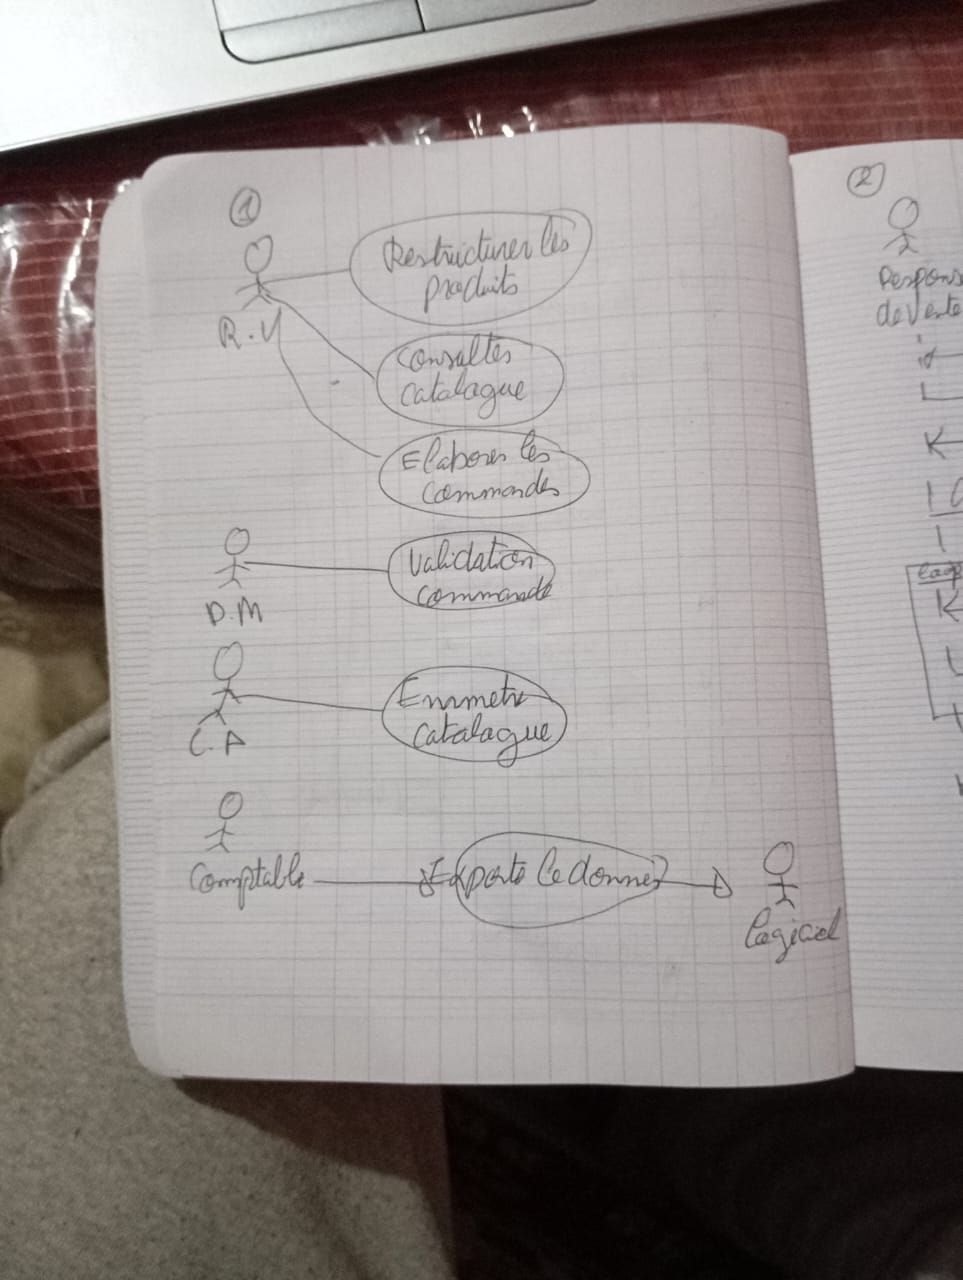 1
Restructurer les
produits
R.V
Consulter
Catalague
Elaborer les
Commandes
Validation
Commande
D.M
Emmetre
Catalague
C.A
Comptable
Exporte le donnes
Logiciel
2
Respons
de Vente
loop